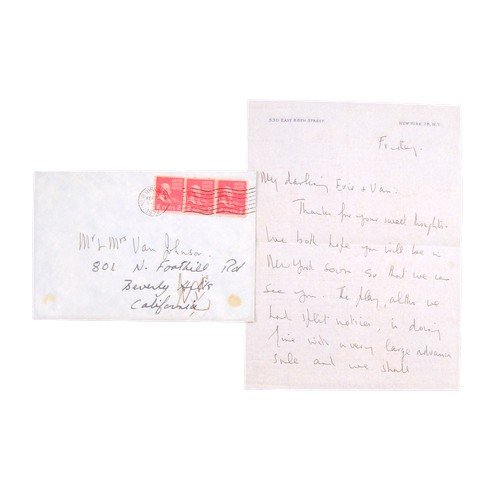 Mr & Mrs Van Johnson
801 N. Foothill Rd
Beverly Hills
California
530 EAST 86TH STREET
NEW YORK 28, N.Y.
Friday.
My darling Evie + Van:
Thanks for your sweet thoughts.
We both hope you will be in
New York soon so that we can
see you. The play, altho we
had split notices, is doing
fine with a very large advance
sale and we shall